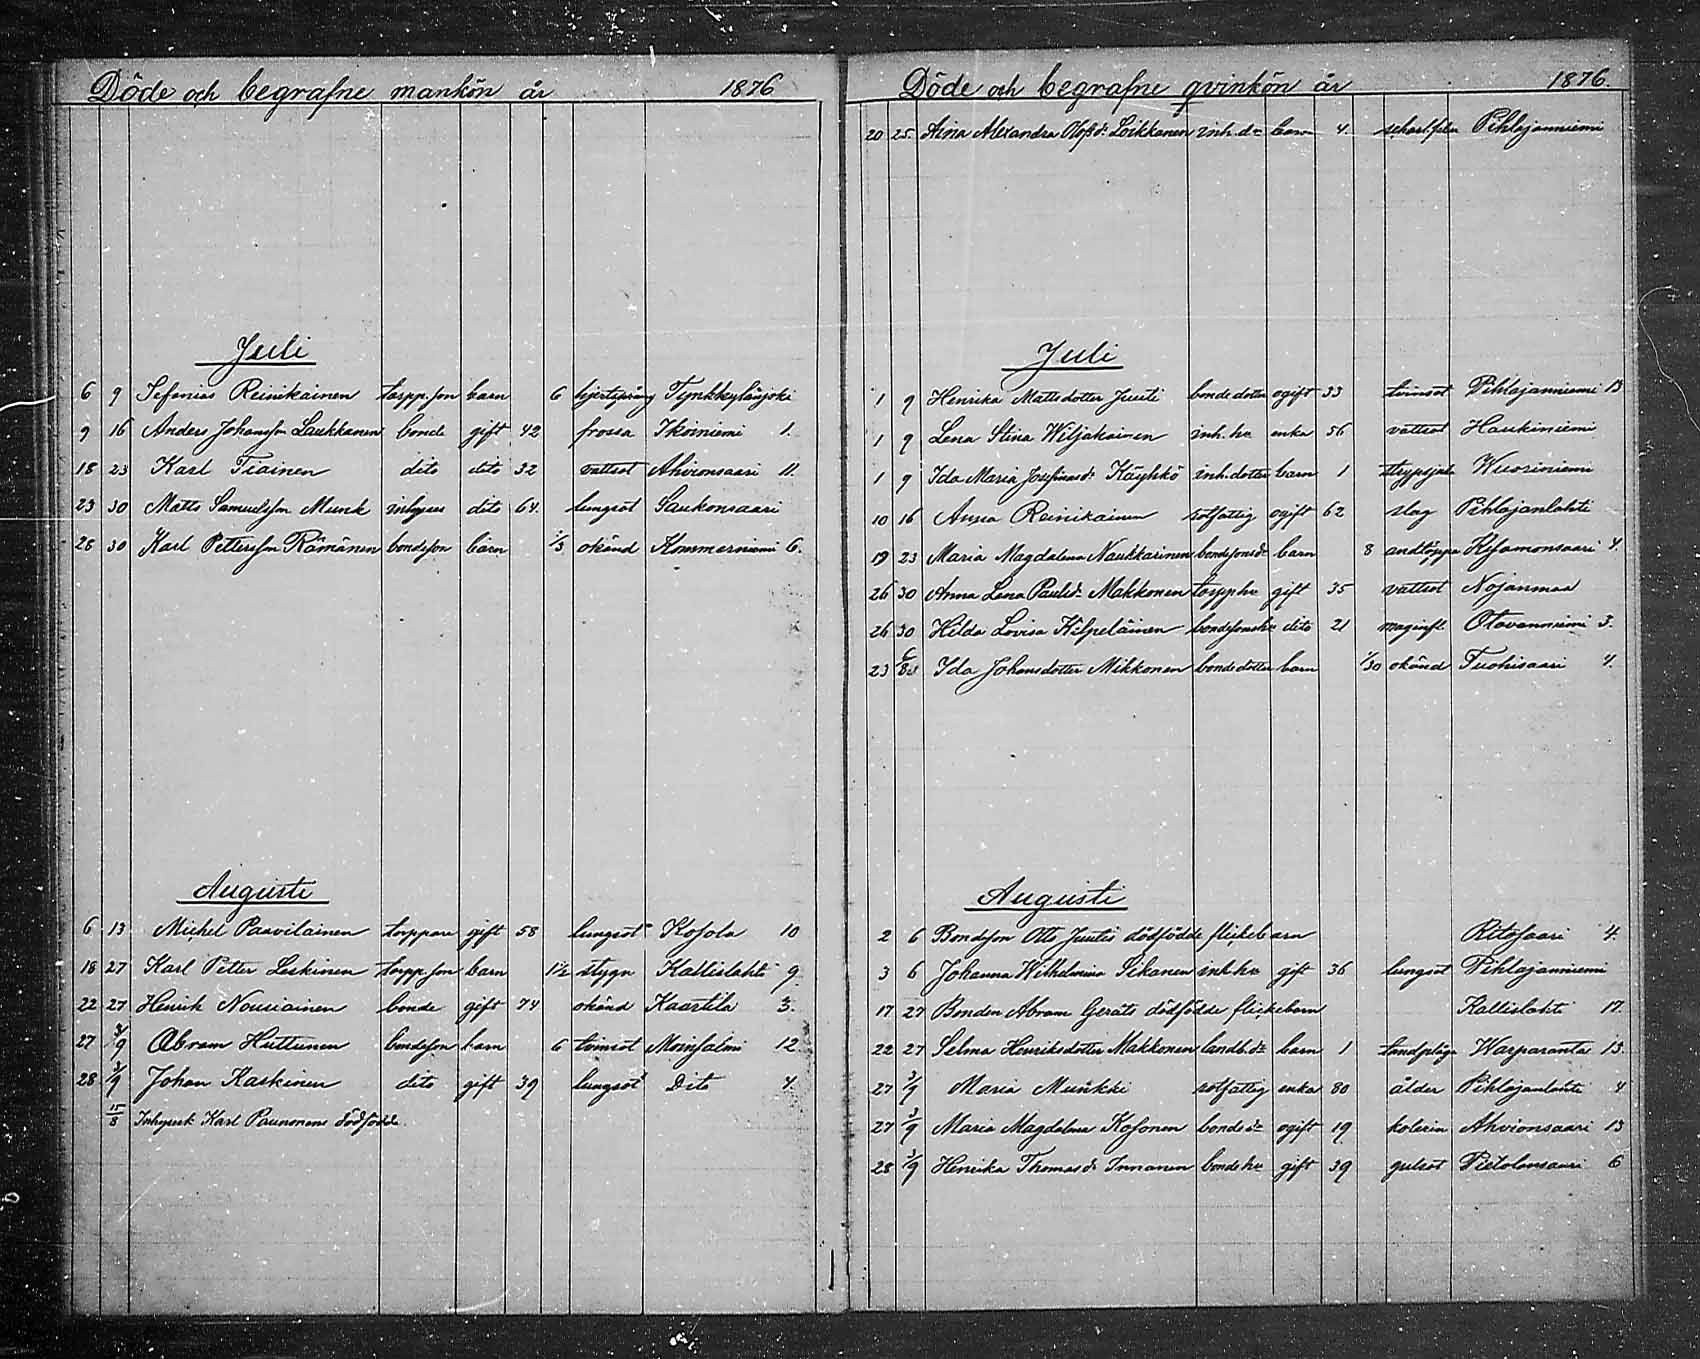 Döde och begrafne mankön år 1876
Juli
6 9 Sefanias Reinikainen torpp.son barn 6 Tynkkylänjoki
9 16 Anders Johansson Laukkanen bonde gift 42 frossa Ikoinniemi 1.
18 23 Karl Tiainen dito dito 32 vattsot Ahvionsaari 11.
23 30 Matts Samuelsson Munck inhyses dito 64. lungsot Saukonsaari
28 30 Karl Pettersson Römänen bondeson barn 1/3 okänd Kommerniemi 6.
Augusti
6 13 Michel Paavilainen torppare gift 58 lungsot Kosola 10
18 27 Karl Petter Leskinen torpp.son barn 1 1/2 stygn Kallislahti 9
22 27 Henrik Nousiainen bonde gift 74 okänd Kaartila 3.
27 3/9 Abram Huttunen bondeson barn 6 tvinsot Moinsalmi 12
28 3/9 Johan Kaskinen dito gift 39 lungsot Dito 4.
15/8 Inhysest Karl Paunonens dödfödde
Döde och begrafne qvinkön år 1876.
20 25 Aina Alexandra Olofsd: Loikkanen inh.d: barn 4. scharl.feber Pihlajanniemi
Juli
1 9 Henrika Mattsdotter Juuti bondedotter ogift 33 tvinsot Pihlajanniemi 13
1 9 Lena Stina Wiljakainen inh.hu enka 56 vattsot Haukiniemi
1 9 Ida Maria Josefinasd: Käyhkö inh.dotter barn 1 strypsjuka Wuoriniemi
10 16 Anna Reinikainen rotfattig ogift 62 slag Pihlajanlahti
19 23 Maria Magdalena Naukkarinen bondesonsd: barn 8 andtäppa 4.
26 30 Anna Lena Paulsd: Makkonen torpphu gift 35 vattsot Nojanmaa
26 30 Hilda Lovisa Kilpeläinen bondesonshu dito 21 maginfl Otavanniemi 3.
23 6/8 Ida Johansdotter Mikkonen bondedotter barn 1/30 okänd Tuohisaari 4.
Augusti
2 6 Bondeson Otto Juutis dödfödde flickebarn Ritosaari 4.
3 6 Johanna Wilhelmina Sikanen inh.hu gift 36 lungsot Pihlajanniemi
17 27 Bonden Abram Geräts dödfödde flickebarn Kallislahti 17.
22 27 Selma Henriksdotter Makkonen landb.d: barn 1 tandplåga Warparanta 13.
27 3/9 Maria Munkki rotfattig enka 80 ålder Pihlajanlahti 4
27 3/9 Maria Magdalena Kosonen bonded: ogift 19 kolerin Ahvionsaari 13
28 3/9 Henrika Thomasd: Innanen bondehu gift 39 gulsot Pietolansaari 6